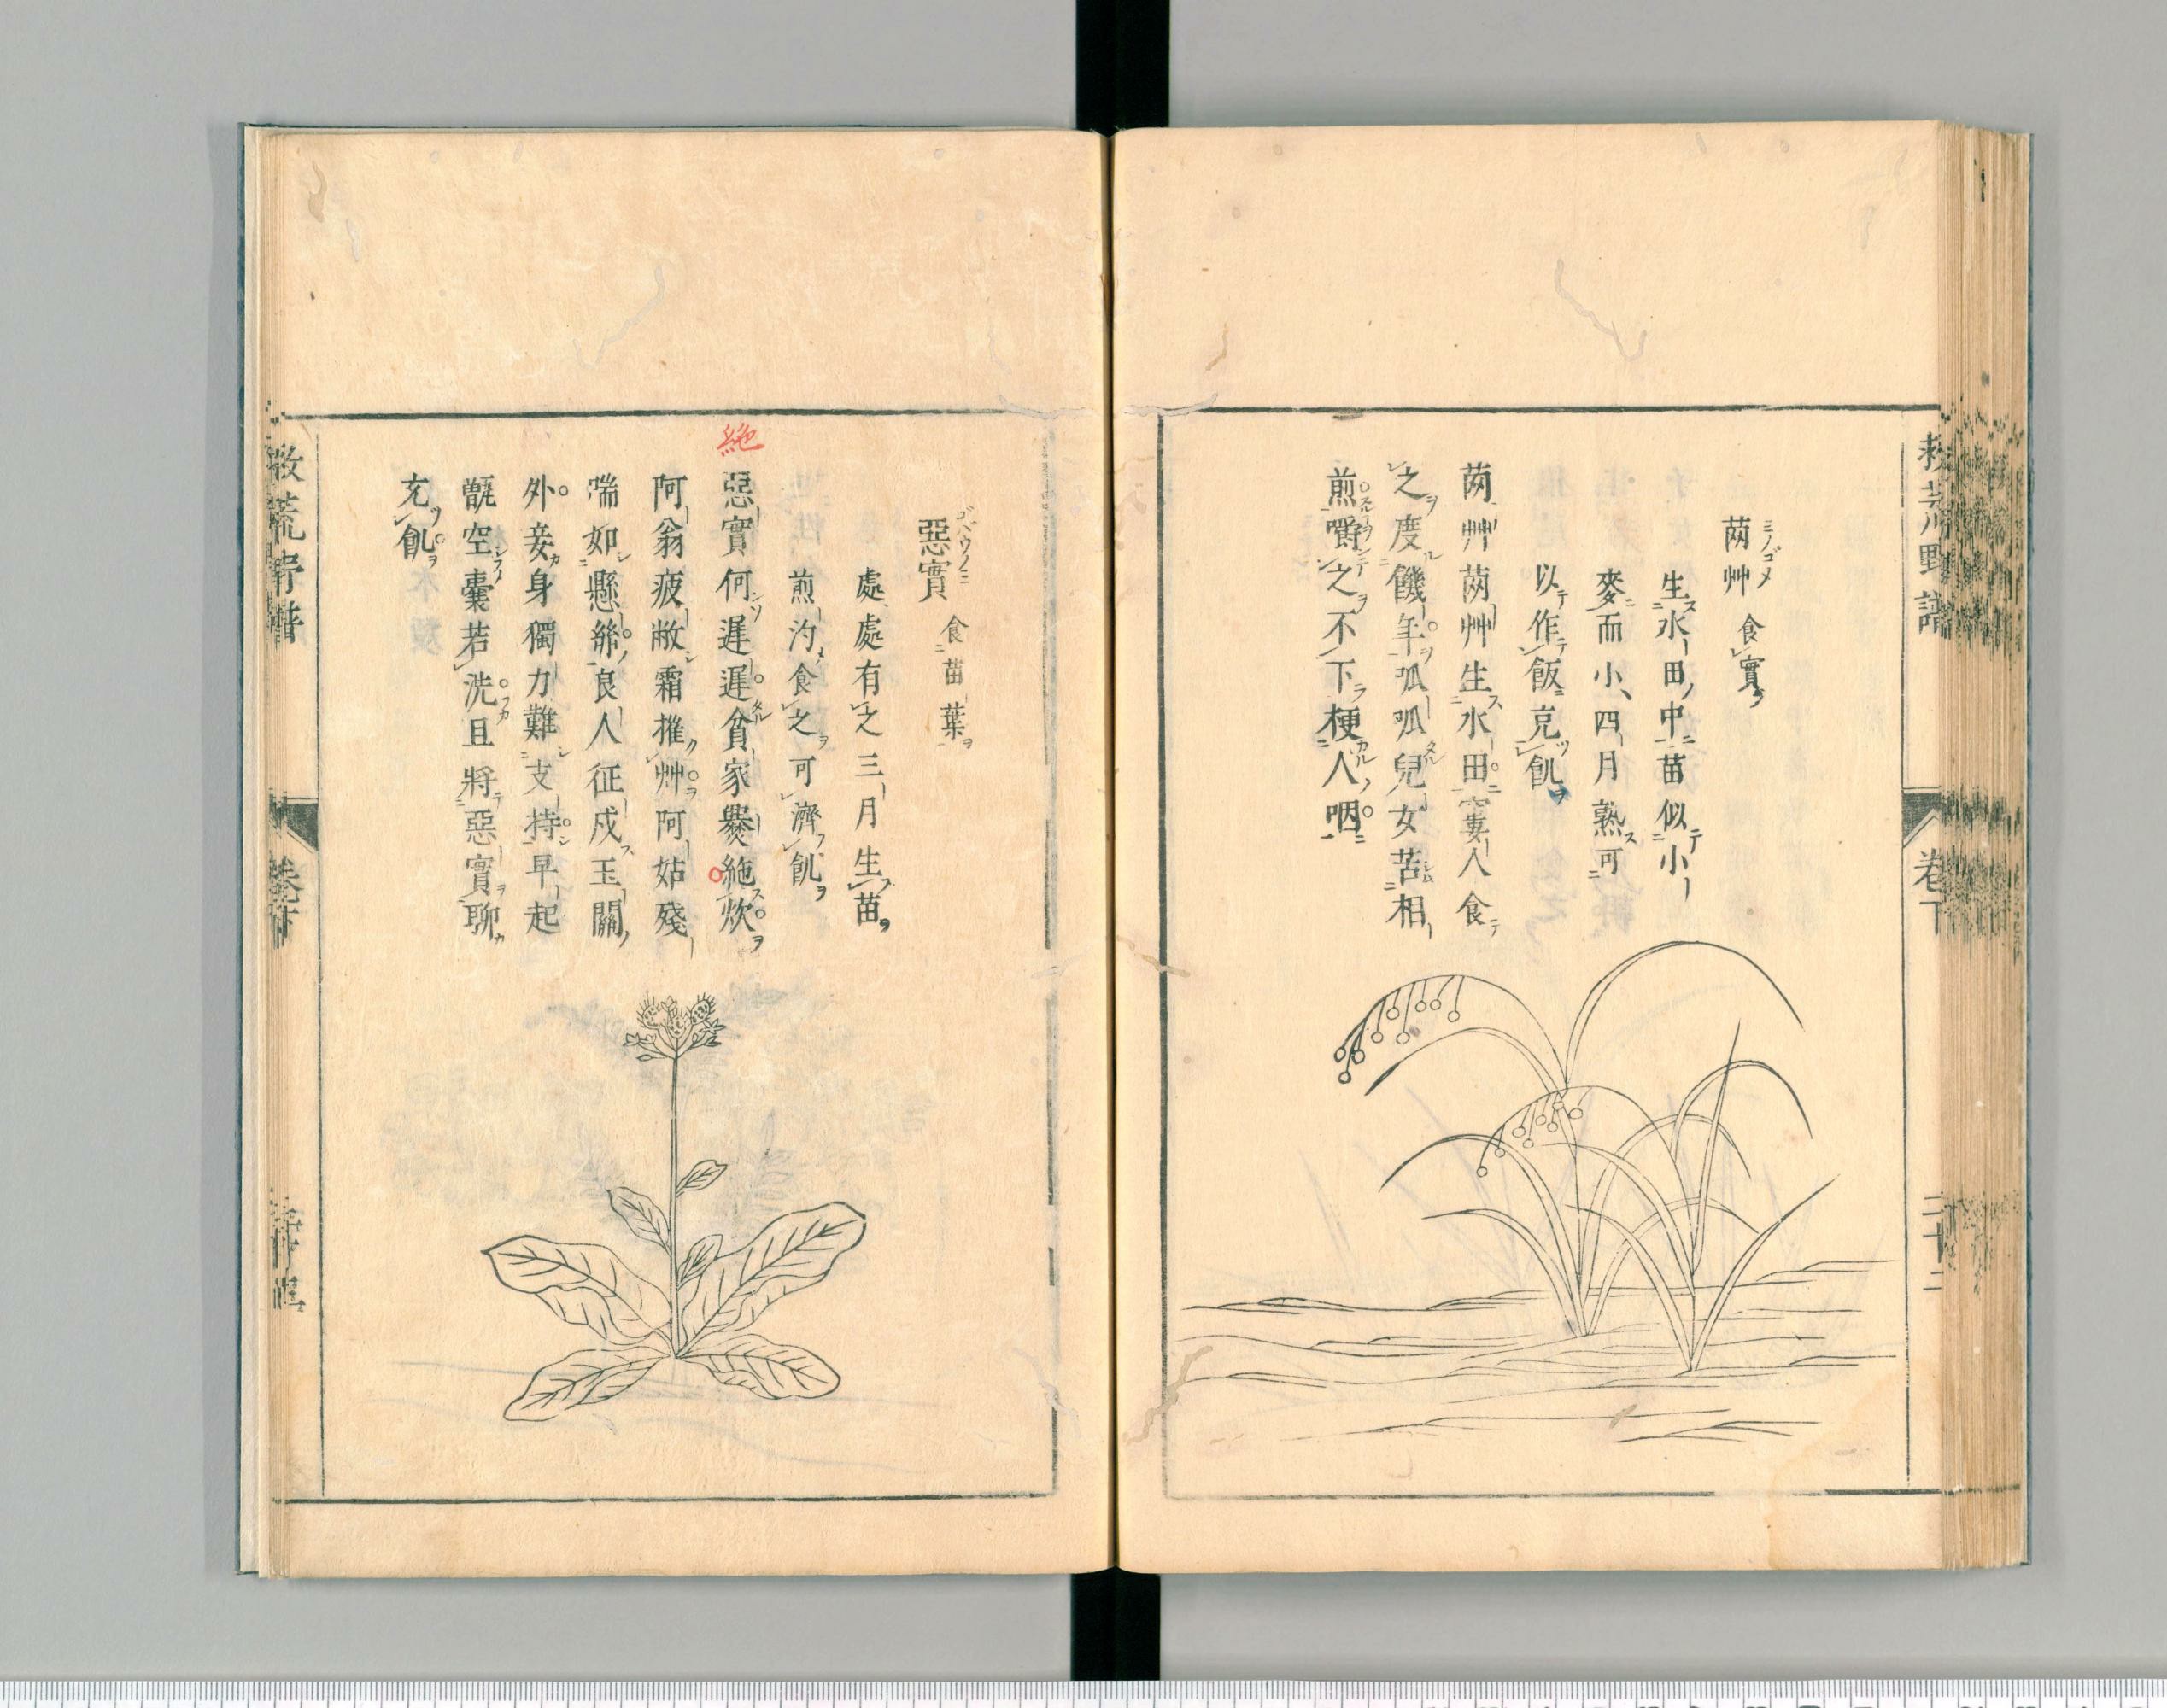 救荒野譜
卷下
二十二
䒳艸 食實
ミノゴメ
生水田中苗似小
麥而小四月熟可
以作飯充飢
䒳艸䒳艸生水田窶人食
之度饑年呱呱兒女苦相
煎嚼之不下梗人咽
惡實 食苗葉
ゴバウノミ
處處有之三月生苗
煎汋食之可濟飢
絶
惡實何遲遲貧家㸑絁炊
阿翁疲敝霜摧艸阿姑殘
喘如懸絲良人征戍玉關
外妾身獨力難支持早起
甑空囊若洗且將惡實聊
充飢
救荒野譜